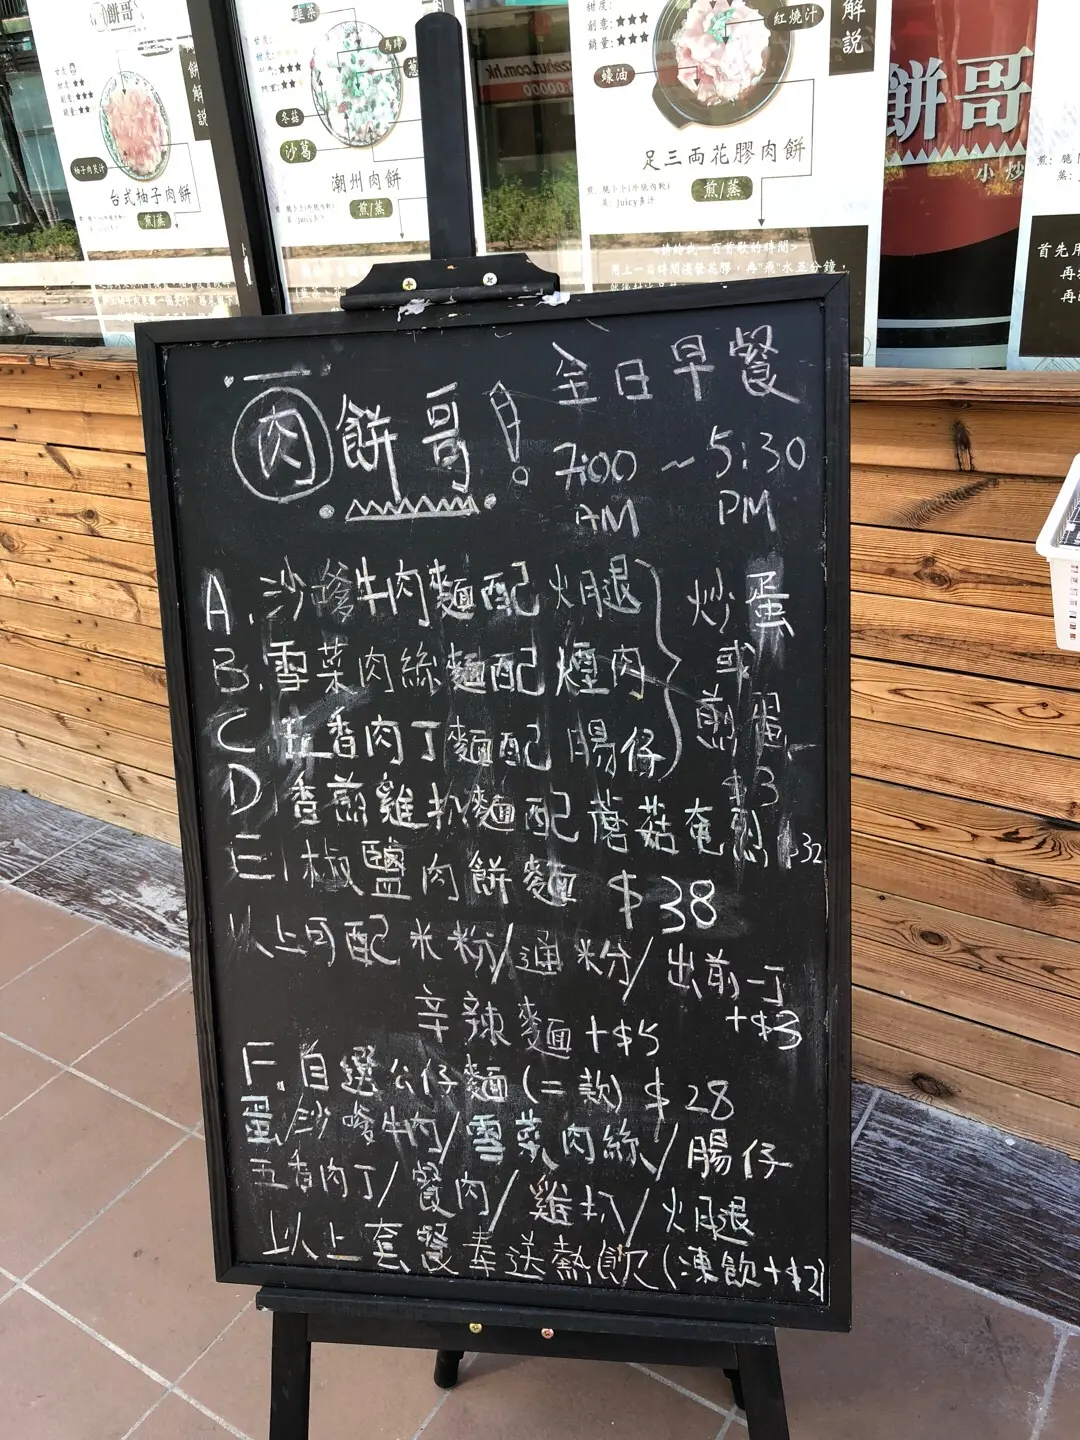 餅哥
韭菜
馬蹄
冬菇
沙葛
餅解說
柚子肉煲汁
台式柚子肉餅
煎/蒸
潮州肉餅
煎/蒸
甜度:
創意:★★★
銷量:★★★
紅燒汁
解說
蠔油
足三両花膠肉餅
煎/蒸
蒸: Juicy多汁
餅哥
小炒
首先用
再
再
全日早餐
肉餅哥
7:00 AM ~ 5:30 PM
A. 沙嗲牛肉麵配火腿
B. 雪菜肉絲麵配煙肉
C. 五香肉丁麵配腸仔
炒蛋
或
煎蛋
$3
D 香煎雞扒麵配蘑菇奄列
E 椒鹽肉餅麵 $38
以上可配米粉/通粉/出前一丁 +$3
辛辣麵+$5
F. 自選公仔麵(二款) $28
蛋/沙嗲牛肉/雪菜肉絲/腸仔
五香肉丁/餐肉/雞扒/火腿
以上套餐奉送熱飲(凍飲+$2)